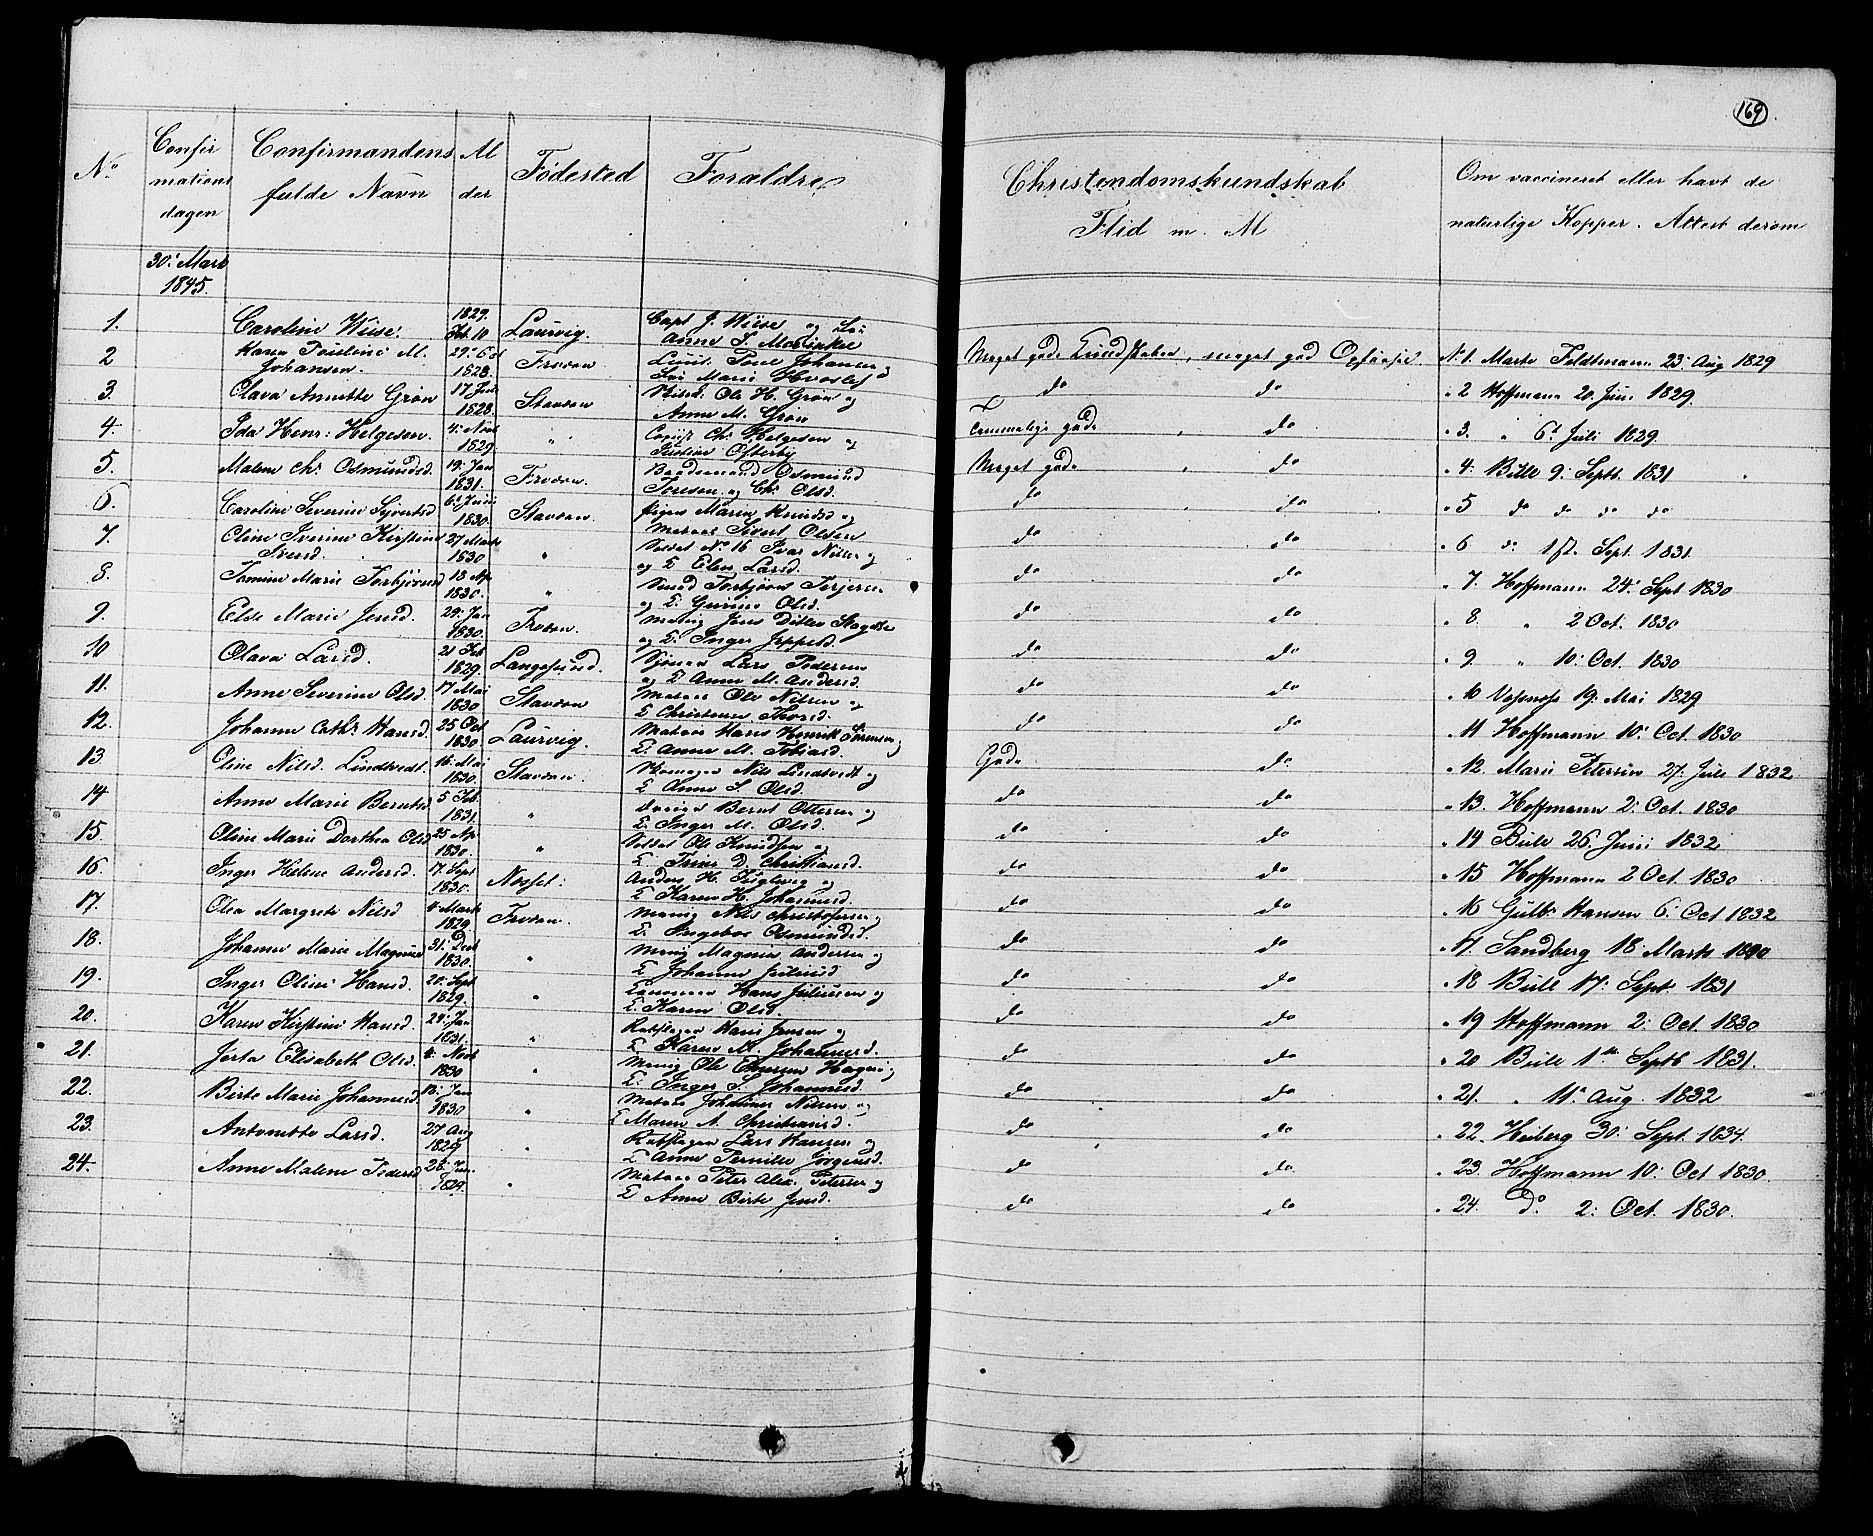 169
No
Confir
mations
dagen
Confirmandens
fulde Navn
Al
der
Fødested
Forældre
Christendomskundskab
Flid m. M
Om vaccineret eller havt de
naturlige Kopper. Attest derom
30: Marts
1845.
1. Caroline Wiese. 1829. Feb 10 Laurvig. Capt J. Wiese og
Anne S.
2 Karen Pouline M. Johansen. 29: Oct 1828. Fredvrn Lieut. Poul Johansen
Marie Hvoslef
3. Olava Annette Grøn 17 1828. Stavern Ole H. Grøn og
Anne M. Grøn
4. Ida Henr: Helgesen. 4: Novb 1829 " Copiist Chr Helgesen og
Justine Ofterby
5. Malene Chr. Osmundsd. 19: Jan 1831. Fredvrn. Baadsmand Osmund
Toresen og Chr. Olsd.
6. Caroline Severine Syvertsd 6: Juni 1830. Stavern. pigen Maren Knudsd og
Matros Sivert Olsen
7. Oline Iverine Kirstine Iversd. 27 Marts 1830 " Soldat No 16 Ivar Nilsen og
og E Elen Larsd.
8. Marie Torbjørnsd 13 Ap 1830. " Torbjørn Terjesen
og E. Gurine Olsd.
9. Else Marie Jensd. 29: Jan 1830. Jens Ditlev
og E. Inger Jeppesd.
10 Olava Larsd. 21 Feb 1829. Langesund. Lars Pedersen
og E Anne M. Andersd.
11. Anne Severine Olsd. 17 Mai 1830 Stavern Matros Ole Nilsen og
E Christense Thorsd.
12. Johanne Cath: Hansd. 25 Oct 1830. Laurvig. Matros Hans Henrik Sørensen og
E. Anne M. Tobiasd.
13 Oline Nilsd. Lindtvedt. 16: Mai 1830. Stavern. Skomager Nils Lindtvedt og
E Anne S. Olsd.
14 Anne Marie Berntsd 5 Feb. 1831. " Bernt Ottersen og
E. Inger M. Olsd.
15. Oline Marie Dorthea Olsd 25 Ap. 1830. " Soldat Ole Knudsen og
E. Trine D. Christiansd.
16. Inger Helene Andersd. 17. Sept 1830. Anders H. Fuglevig og
E Karen H. Johannesd.
17. Olea Margrete Nilsd 4 Marts 1829. Nils Christofersen og
E. Ingebor Osmundsd.
18. Johanne Marie Magnusd 31: Decb 1830. " Magnus Andersen og
E Johanne Juliusd
19. Inger Oline Hansd. 20: Sept 1829. " Hans Juliusen og
E. Karen Olsd.
20. Karen Kirstine Hansd. 24: Jan 1831. " Rebslager Hans Jensen og
E Karen M. Johannesd.
21. Elisabeth Olsd. 4: Novb 1830 " Ole
E. Inger S. Johannesd.
22. Birte Marie Johannesd. 13: Jan 1830 " Matros Johannes Nilsen og
E Maren A. Christiansd.
23. Antonette Larsd. 27 Aug 1829 " Rebslager Lars Hansen og
E Anne Pernille Jørgensd.
24. Anne Malene Pedersd 28: 1829. " Matros Peter Alex. Petersen og
E Anne Birte Jensd.
Meget gode Kundskaber, meget god Opførsel. No 1. Marte Feldtmann 23: Aug 1829
do do " 2 Hoffmann 20. Juni 1829.
Temmelig gode, do " 3. " 6t Juli 1829.
Meget gode, do " 4: Bille 9: Septb. 1831
do, do " 5 do do do do
do do " 6 do Sept. 1831.
do do " 7. Hoffmann 24: Sept 1830
do do " 8. " 2 Oct. 1830
do do " 9. " 10: Oct. 1830
do do " 10 19: Mai 1829
do do " 11 Hoffmann 10: Oct. 1830
Gode do " 12. Marie Petersen 27: Juli 1832
do do " 13. Hoffmann 2: Oct. 1830
do do " 14 Bille 26 Juni 1832
do do " 15 Hoffmann 2 Oct. 1830
do do " 16 Gulb: Hansen 6: Oct 1832
do do " 17 Sandberg 18 Marts
do do " 18 Bille 17: Sept. 1831
do do " 19 Hoffmann 2: Oct. 1830
do do " 20 Bille 1ste Septb 1831.
do do " 21. " 11: Aug. 1832
do do " 22. Heiberg 30: Sept. 1834.
do do " 23. Hoffmann 10: Oct 1830.
do do " 24. Do 2: Oct. 1830.